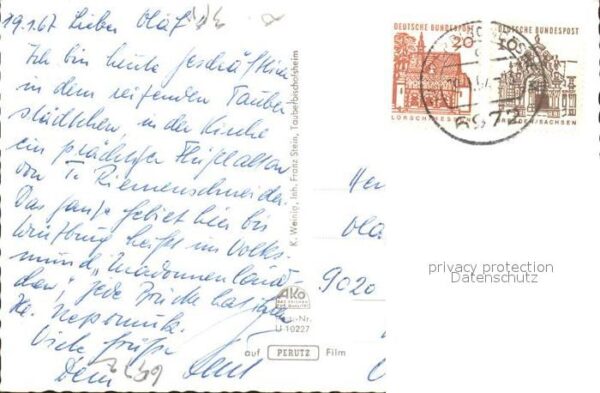 19.1.67 Lieber Olaf!
Ich bin heute geschäftlich
in dem reizenden Tauber
städtchen, in der Kirche
ein prächtiger Flügelaltar
von T. Riemenschneider.
Das ganze Gebiet hier bis
Würzburg heißt im Volks-
mund "Madonnenländ-
chen", jede Brücke hat ihren
Hl. Nepomuk.
Viele Grüße
Dein
K. Weinig, Inh. Franz Stein, Tauberbischofsheim
AKO
-Nr.
U 10227
auf PERUTZ Film
DEUTSCHE BUNDESPOST
20
LORSCH/HESSEN
DEUTSCHE BUNDESPOST
DRESDEN/SACHSEN
6972
Her
Ola
9020
privacy protection
Datenschutz